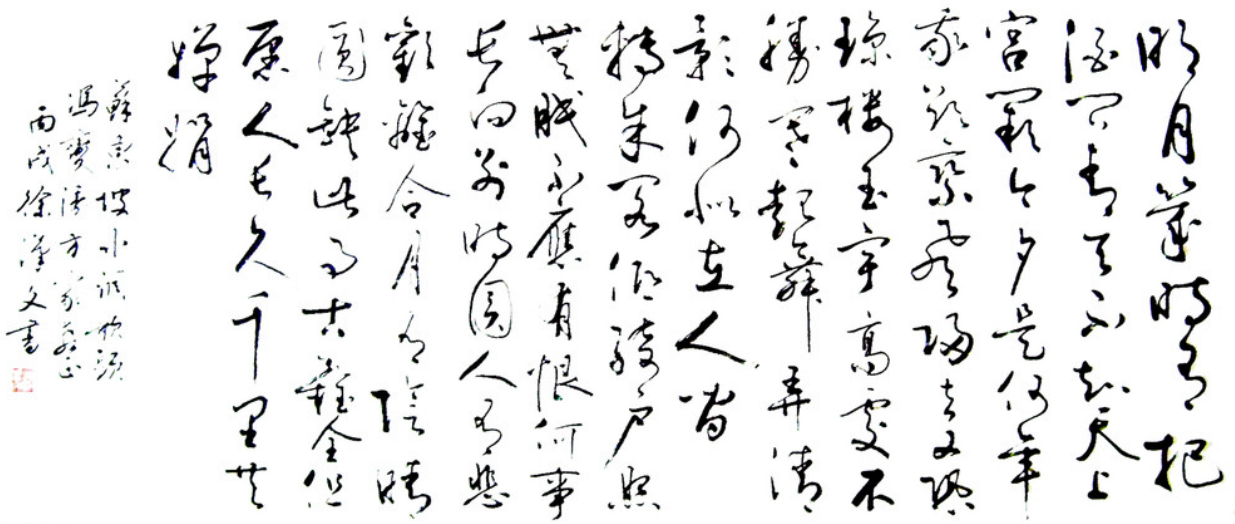 明月幾時有把
酒问青天不知天上
宮闕今夕是何年
我欲乘风歸去又恐
琼楼玉宇高處不
勝寒起舞弄清
影何似在人間
轉朱阁低绮户照
無眠不應有恨何事
长向别時圆人有悲
歡離合月有陰晴
圓缺此事古難全但
愿人长久千里共
嬋娟
蘇東坡水调歌頭
馮濤方家正
丙戌徐漢文書